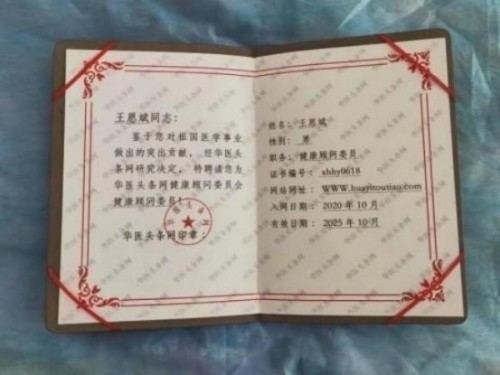 王恩斌同志:
鉴于您对祖国医学事业
做出的突出贡献,经华医头
条网研究决定,特聘请您为
华医头条网健康顾问委员会
健康顾问委员!
华医头条网
华医头条网印章:
姓名:王恩斌
性别:男
职务:健康顾问委员
证书编号:xhhy0618
网站网址:WWW.huayitoutiao.com
入网日期:2020年10月
有效日期:2025年10月